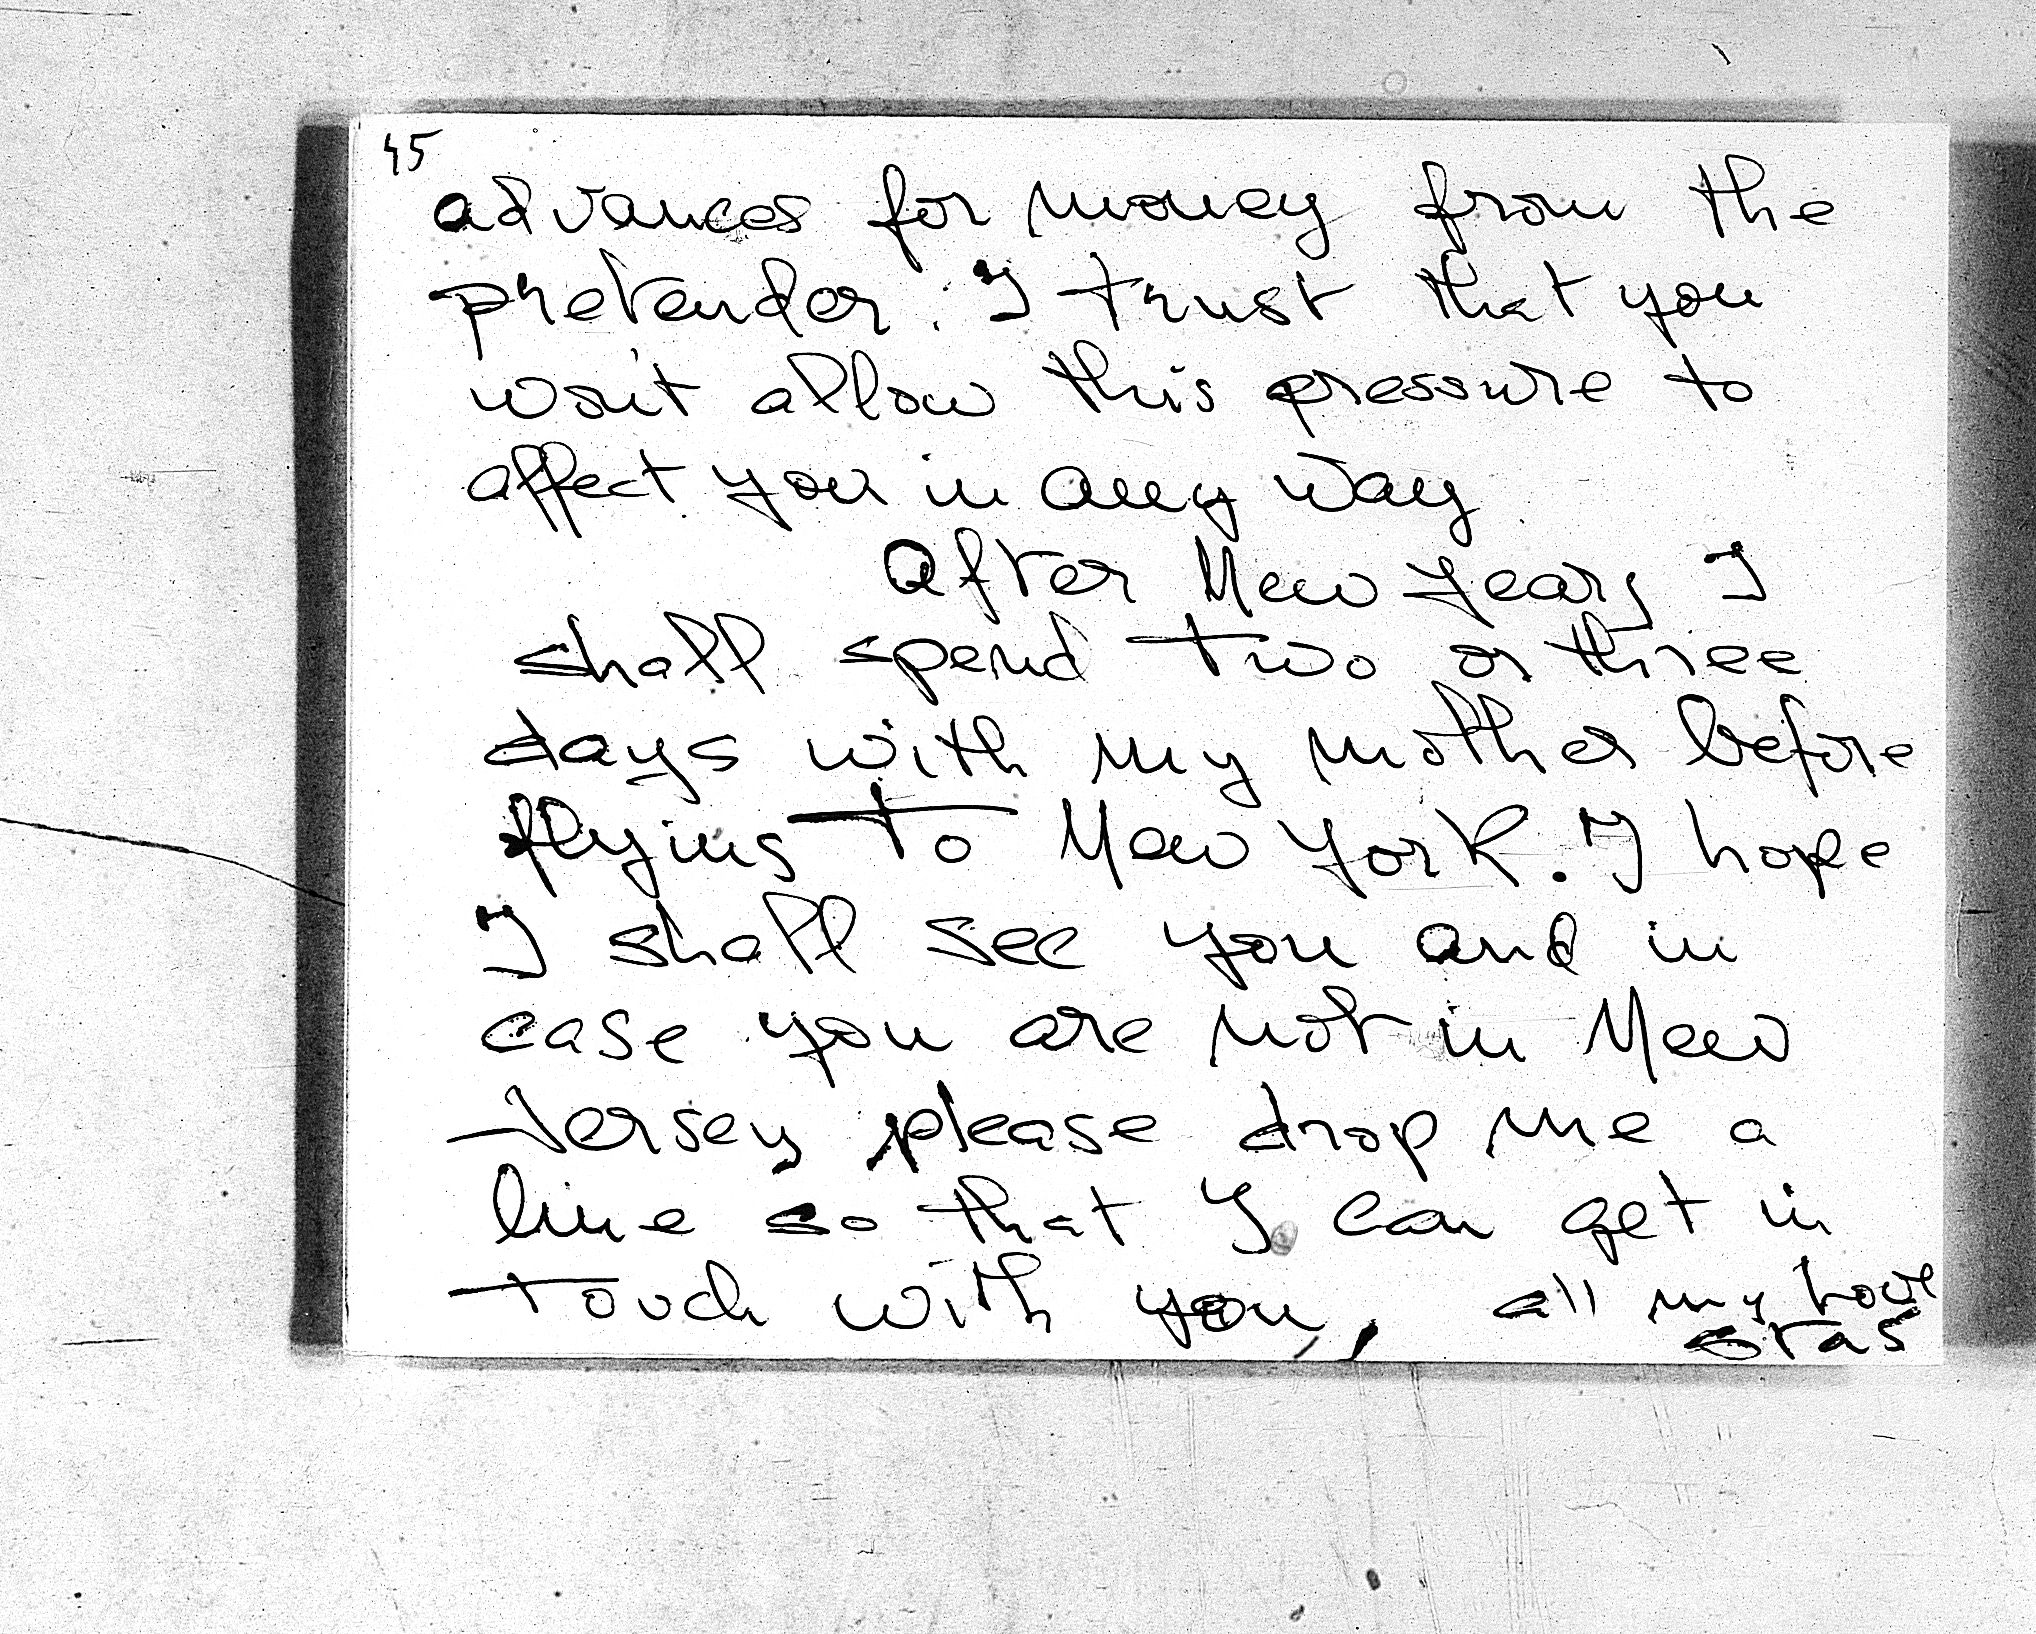 45
advances for money from the
pretender. I trust that you
won't allow this pressure to
affect you in any way
After New Years I
shall spend two or three
days with my mother before
flying to New York. I hope
I shall see you and in
case you are not in New
Jersey please drop me a
line so that I can get in
touch with you, all my love
Stas